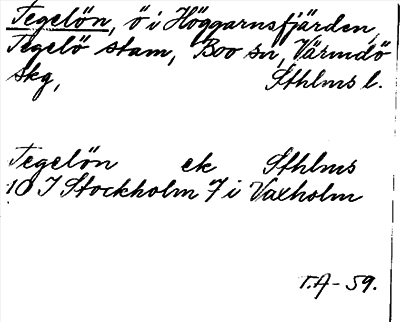 Tegelön, ö i Höggarnsfjärden,
Tegelö stam, Boo sn, Värmdö
skg, Sthlms l.
Tegelön ek Sthlms
10 I Stockholm 7 i Vaxholm
T.A-59.